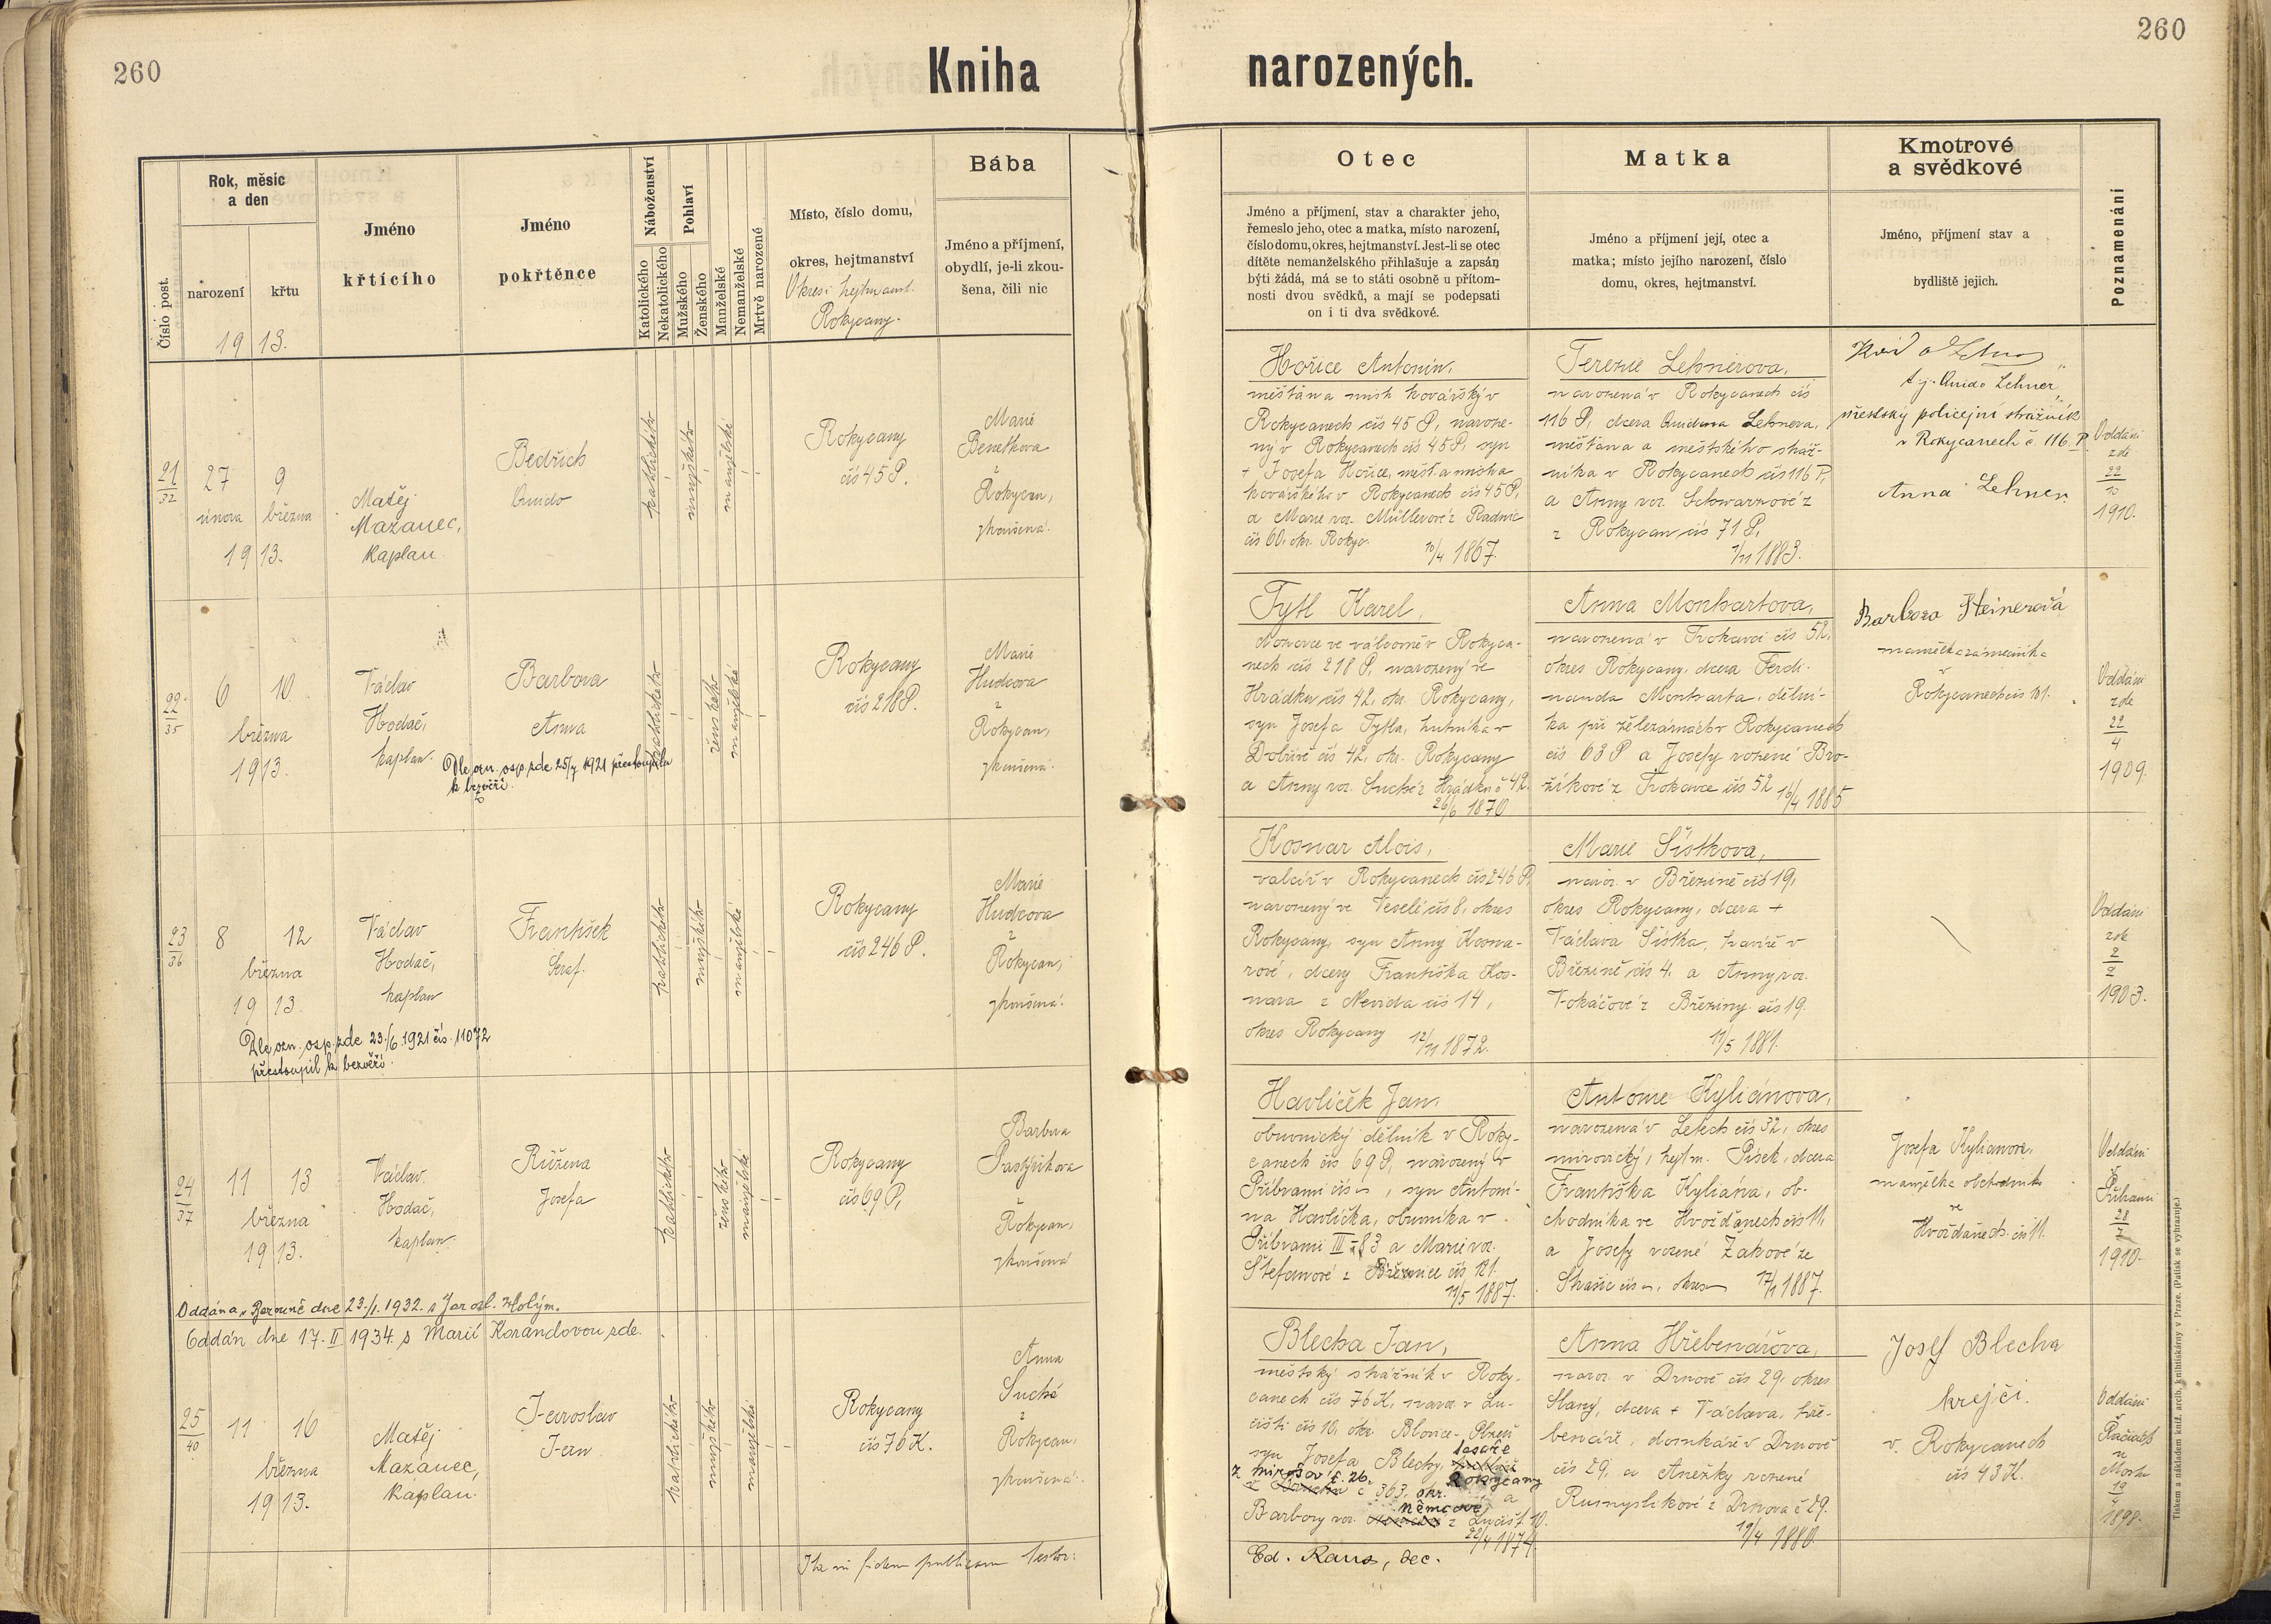 260
260
Kniha narozených.
Číslo post.
Rok, měsíc
a den
narození
křtu
19 13.
Jméno
křtícího
Jméno
pokřtěnce
Náboženství
Katolického
Nekatolického
Pohlaví
Mužského
Ženského
Manželské
Nemanželské
Mrtvě narozené
Místo, číslo domu,
okres, hejtmanství
Okres i hejtmanst.
Rokycany.
Bába
Jméno a příjmení,
obydlí, je-li zkou-
šena, čili nic
Otec
Jméno a příjmení, stav a charakter jeho,
řemeslo jeho, otec a matka, místo narození,
číslo domu, okres, hejtmanství. Jest-li se otec
dítěte nemanželského přihlašuje a zapsán
býti žádá, má se to státi osobně u přítom-
nosti dvou svědků, a mají se podepsati
on i ti dva svědkové.
Matka
Jméno a příjmení její, otec a
matka; místo jejího narození, číslo
domu, okres, hejtmanství.
Kmotrové
a svědkové
Jméno, příjmení stav a
bydliště jejich.
Poznamenání
21/32
27 9
února března
19 13.
Matěj
Mazanec,
kaplan
Bedřich
Quido
katolického
mužského
manželské
Rokycany
čís 45 P.
Marie
Benetkova
z
Rokycan,
zkoušená.
Hořice Antonín,
měšťan a mistr kovářský v
Rokycanech čís 45 P, naroze-
ný v Rokycanech čís 45 P, syn
+ Josefa Hořice, měšť. a mistra
kovářského v Rokycanech čís 45 P,
a Marie roz. Müllerové z Radnic
čís 60, okr. Rokyc.
1867.
Terezie Lehnerova,
narozená v Rokycanech čís
116 P, dcera Quidona Lehnera,
měšťana a městského stráž-
níka v Rokycanech čís 116 P,
a Anny roz. Schwarzové z
z Rokycan čís 71 P,
7/11 1883.
t.j. Quido Lehner
městský policejní strážník
v Rokycanech č. 116. P.
Anna Lehner
Oddáni
zde
22
10
1910.
22/35
6 10
března
19 13.
Václav
Hodač,
kaplan.
Barbora
Anna
Dle ozn. osp. zde 25/7 1921 přestoupila
k bezvěří.
katolického
ženského
manželské
Rokycany
čís 218 P.
Marie
Hudcova
z
Rokycan,
zkoušená.
Tytl Karel,
dozorce ve válcovně v Rokyca-
nech čís 218 P, narozený ve
Hrádku čís 42, okr. Rokycany,
syn Josefa Tytla, hutníka v
Dobřívě čís 42, okr. Rokycany
a Anny roz. Suché z Hrádku č 42.
26/6 1870
Anna Monhartova,
narozená v Trokavci čís 52,
okres Rokycany, dcera Ferdi-
nanda Monharta, dělní-
ka při železárnách v Rokycanech
čís 68 P a Josefy rozené Bro-
žíkové z Trokavce čís 52
16/4 1885
Barbora Steinerová
manželka zámečníka
v
Rokycanech čís 101.
Oddáni
zde
22
4
1909.
23/36
8 12
března
19 13.
Dle ozn. osp. zde 23./6. 1921 čís. 11072
přestoupil k bezvěří.
Václav
Hodač,
kaplan
František
Seraf.
katolického
mužského
manželské
Rokycany
čís 246 P.
Marie
Hudcova
z
Rokycan,
zkoušená.
Kosnar Alois,
valcíř v Rokycanech čís 246 P,
narozený ve Veselé čís 8, okres
Rokycany, syn Anny Kosna-
rové, dcery Františka Kos-
nara z Nevida čís 14,
okres Rokycany
12/11 1872.
Marie Šístkova,
naroz. v Březině čís 19,
okres Rokycany, dcera +
Václava Šístka, havíře v
Březině čís 4. a Anny roz.
Vokáčové z Březiny čís 19.
11/5 1881.
Oddáni
zde
2
2
1903.
24/37
11 13
března
19 13.
Václav
Hodač,
kaplan.
Růžena
Josefa
katolického
ženského
manželské
Rokycany
čís 69 P,
Barbora
Pastýříkova
z
Rokycan,
zkoušená
Havlíček Jan,
obuvnický dělník v Roky-
canech čís 69 P, narozený v
Příbrami čís –, syn Antoní-
na Havlíčka, obuvníka v
Příbrami III-83 a Marie roz.
Štefanové z Březnice čís 121.
11/5 1887.
Antonie Kyliánova,
narozená v Letech čís 32, okres
mirovický, hejtm. Písek, dcera
Františka Kyliána, ob-
chodníka ve Hvožďanech čís 11,
a Josefy rozené Žákové ze
Strašic čís –, okres –
17/1 1887.
Josefa Kylianova,
manželka obchodníka
ve
Hvožďanech čís 11.
Oddáni
v
Příbrami
28
7
1910.
Oddána v Berouně dne 23./1. 1932. s Jarosl. Holým.
Oddán dne 17. II 1934 s Marií Korandovou zde.
25/40
11 16
března
19 13.
Matěj
Mazanec,
kaplan.
Jaroslav
Jan
katolického
mužského
manželské
Rokycany
čís 76 K.
Anna
Suché
z
Rokycan,
zkoušená.
Blecha Jan,
městský strážník v Roky-
canech čís 76 K, naroz. v Lu-
čišti čís 10, okr. Blovice – Plzeň
syn Josefa Blechy, tesaře
z Mirošov č. 26. č 363, okr. Rokycany a
Barbory roz. Němcové z Lučišť 10.
22/4 1874
Anna Hřebenářova,
naroz. v Drnově čís 29, okres
Slaný, dcera + Václava, hře-
benáře, domkáře v Drnově
čís 29, a Anežky rozené
Rusmyslíkové z Drnova č 29.
19/4 1880.
Josef Blecha
krejčí
v Rokycanech
čís 43 K.
Oddáni
u
Mostu
19
4
1898.
Ita in fidem publicam testor:
Ed. Raus, dec.
Tiskem a nákladem kníž. arcib. knihtiskárny v Praze. (Patisk se vyhrazuje.)